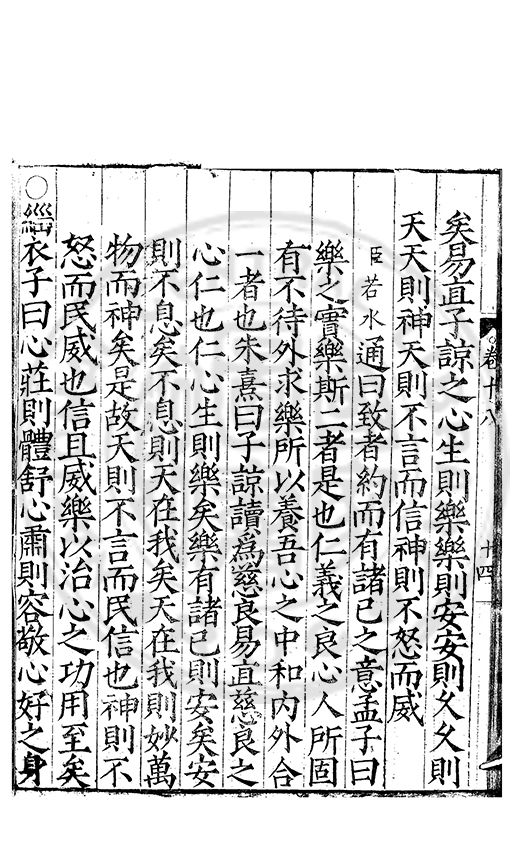 矣易直子諒之心生則樂樂則安安則久久則
天天則神天則不言而信神則不怒而威
臣若水通曰致者約而有諸己之意孟子曰
樂之實樂斯二者是也仁義之良心人所固
有不待外求樂所以養吾心之中和内外合
一者也朱熹曰子諒讀爲慈良易直慈良之
心仁也仁心生則樂矣樂有諸己則安矣安
則不息矣不息則天在我矣天在我則妙萬
物而神矣是故天則不言而民信也神則不
怒而民威也信且威樂以治心之功用至矣
○緇衣子曰心莊則體舒心肅則容敬心好之身
卷十八
十四